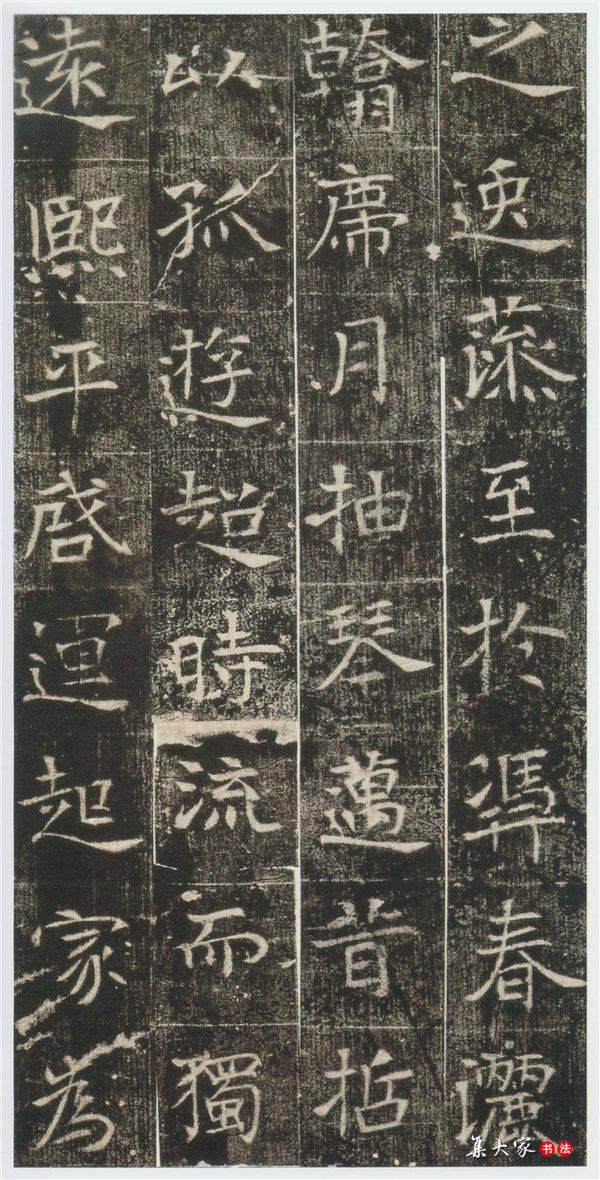 之逸藻至於憑春灑
翰席月抽琴邁昔哲
以孤遊超時流而獨
遠熙平啓運起家為
集大家书法